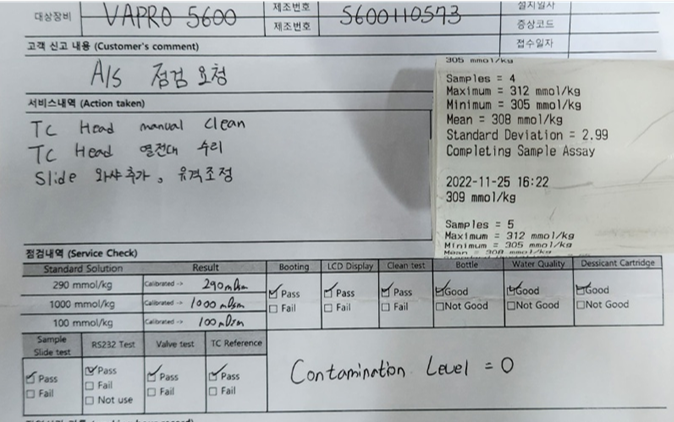 대상장비 VAPRO 5600 제조번호 설치일자
제조번호 5600110573 증상코드
고객 신고 내용 (Customer's comment) 접수일자
A/S 점검 요청
서비스내역 (Action taken)
TC Head manual clean
TC Head 열전대 수리
Slide 와샤 추가, 유격조정
305 mmol/kg
Samples = 4
Maximum = 312 mmol/kg
Minimum = 305 mmol/kg
Mean = 308 mmol/kg
Standard Deviation = 2.99
Completing Sample Assay
2022-11-25 16:22
309 mmol/kg
Samples = 5
Maximum = 312 mmol/kg
Minimum = 305 mmol/kg
Mean = 308 mmol/kg
점검내역 (Service Check)
Standard Solution Result Booting LCD Display Clean test Bottle Water Quality Dessicant Cartridge
290 mmol/kg Calibrated -> 290 mOsm Pass Pass Pass Good Good Good
1000 mmol/kg Calibrated -> 1000 mOsm Fail Fail Fail Not Good Not Good Not Good
100 mmol/kg Calibrated -> 100 mOsm
Sample Slide test RS232 Test Valve test TC Reference
Pass Pass Pass Pass
Fail Fail Fail Fail
Not use
Contamination Level = 0